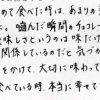 めて食べた時は、あまりの美
た。噛んだ瞬間のチョコレー
美味しさというのは味だけ
関係しているのだと気づか
をかけて、大切に味わって
べている時、本当に幸せで